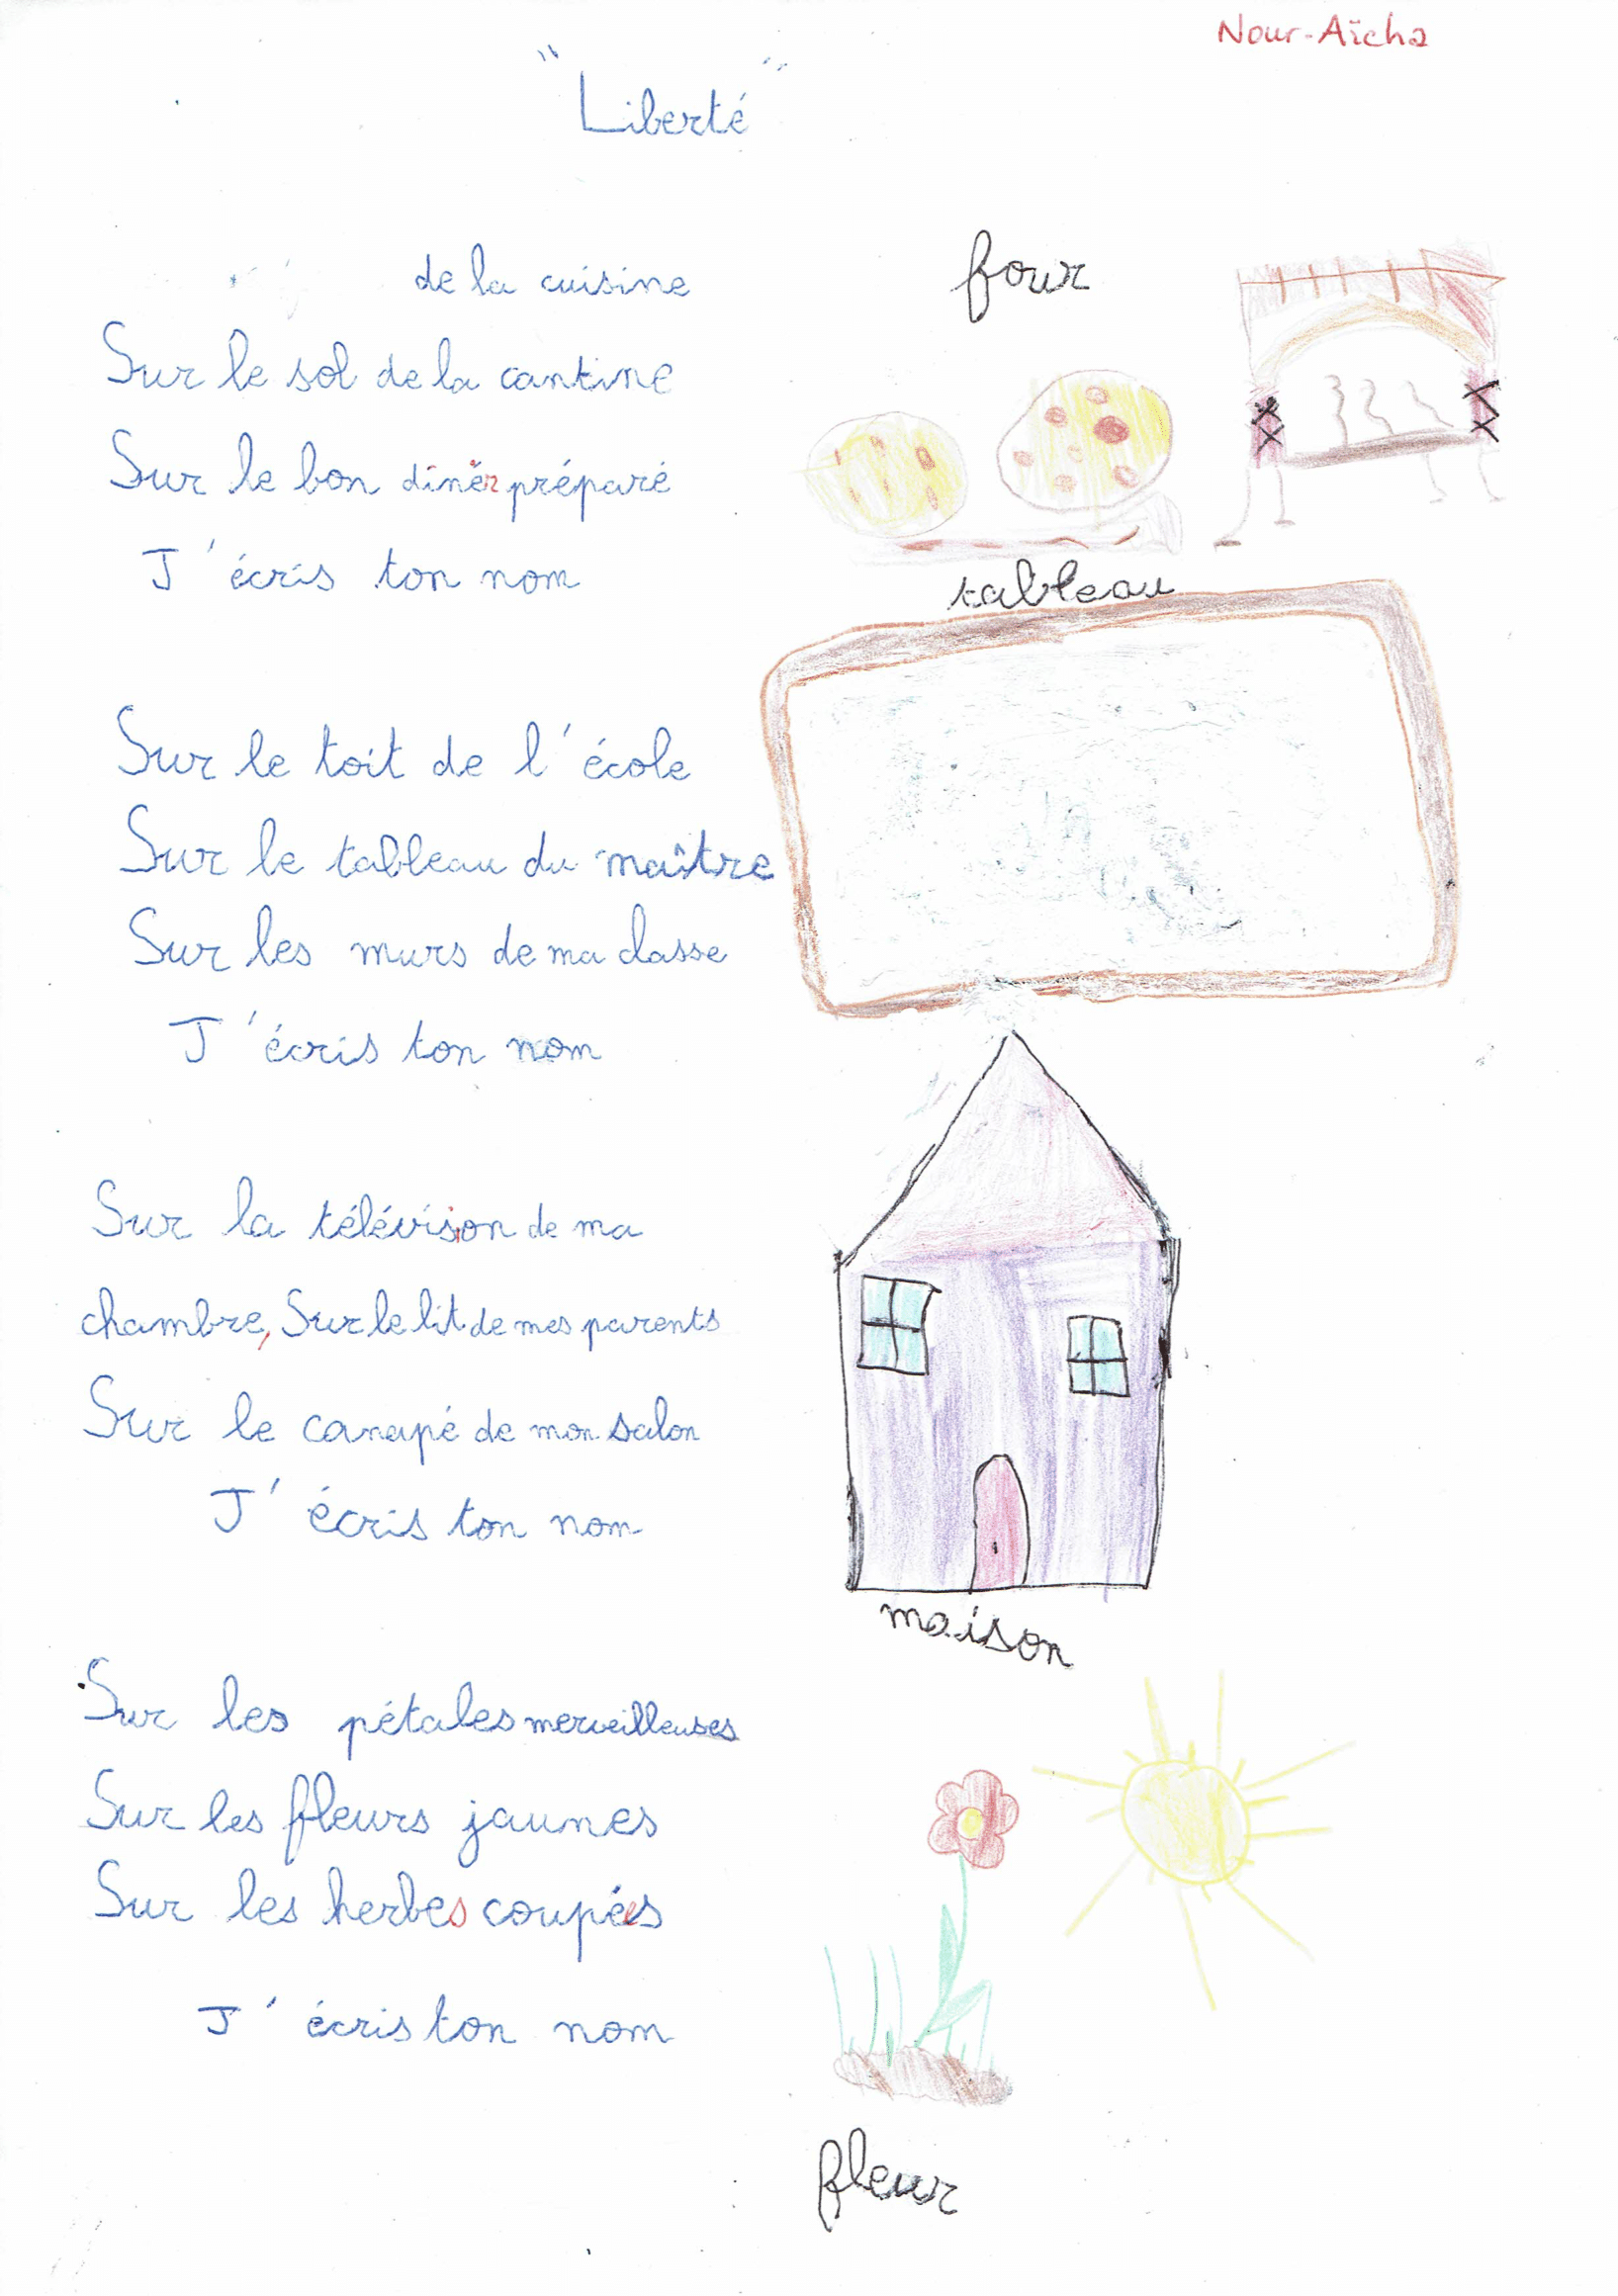 Nour-Aïcha
"Liberté"
de la cuisine
four
Sur le sol de la cantine
Sur le bon dinêr préparé
J'écris ton nom
tableau
Sur le toit de l'école
Sur le tableau du maître
Sur les murs de ma classe
J'écris ton nom
Sur la télévision de ma
chambre, Sur le lit de mes parents
Sur le canapé de mon salon
J'écris ton nom
maison
Sur les pétales merveilleuses
Sur les fleurs jaunes
Sur les herbes coupées
J'écris ton nom
fleur